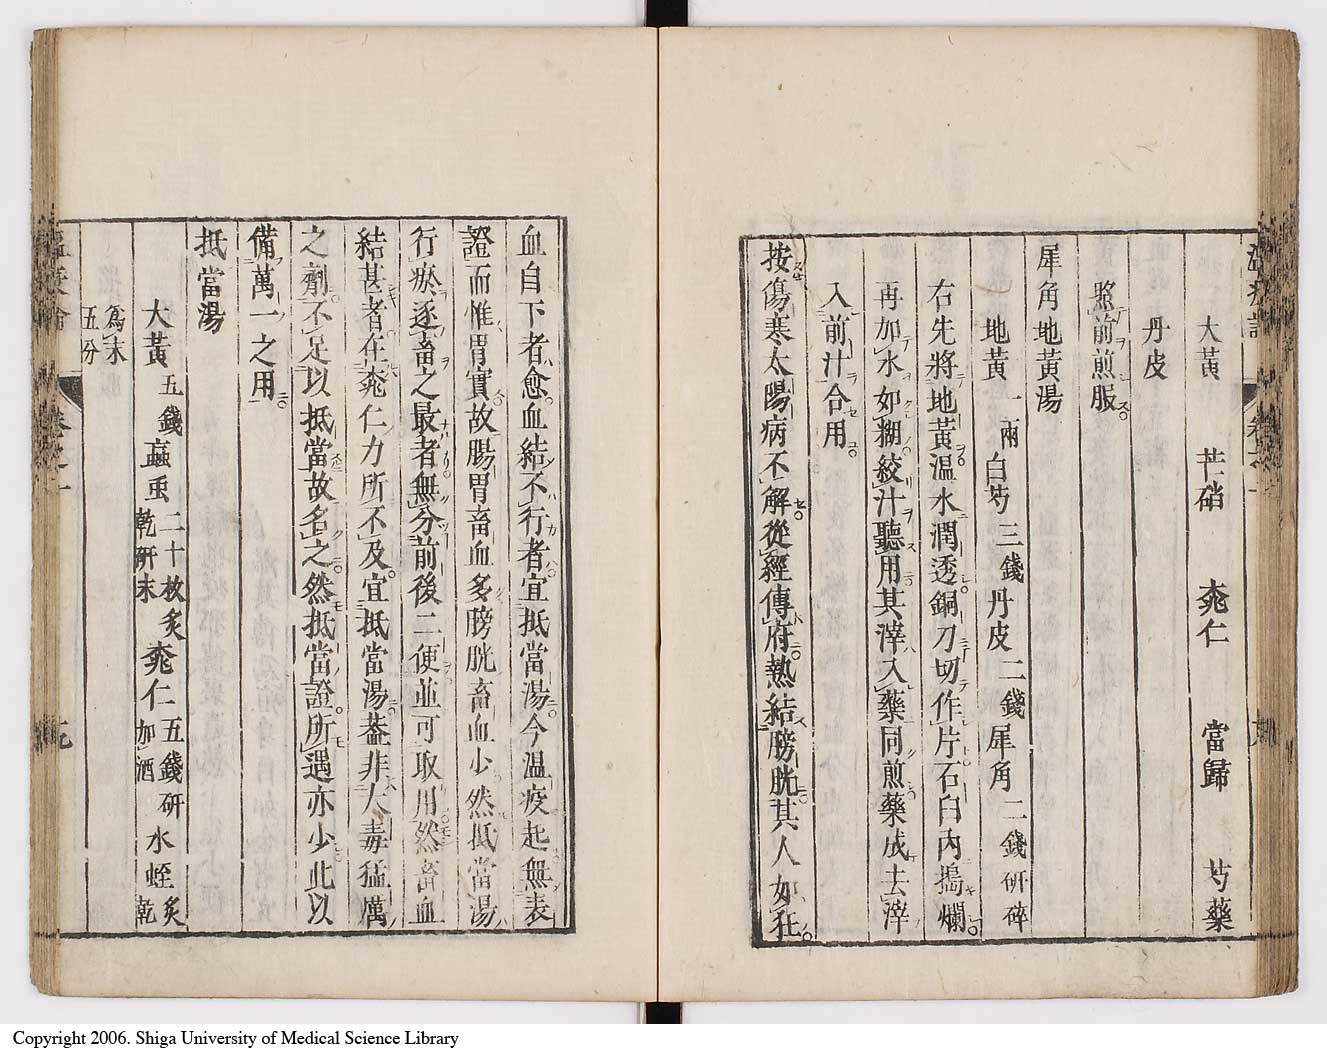 大黃　芒硝　桃仁　當歸　芍藥
丹皮
照前煎服
犀角地黃湯
地黃一兩白芍三錢丹皮二錢犀角二錢研碎
右先將地黃温水潤透銅刀切作片石臼內搗爛
再加水如糊絞汁聽用其滓入藥同煎藥成去滓
入前汁合用
按傷寒太陽病不解從經傳府熱結膀胱其人如狂
血自下者愈血結不行者宜抵當湯今温疫起無表
證而惟胃實故腸胃畜血多膀胱畜血少然抵當湯
行瘀逐畜之最者無分前後二便並可取用然畜血
結甚者在桃仁力所不及宜抵當湯葢非大毒猛厲
之劑不足以抵當故名之然抵當證所遇亦少此以
備萬一之用
抵當湯
大黃五錢䗪虫二十枚炙乾研末桃仁五錢研加酒水蛭炙乾
爲末五分
Copyright 2006. Shiga University of Medical Science Library